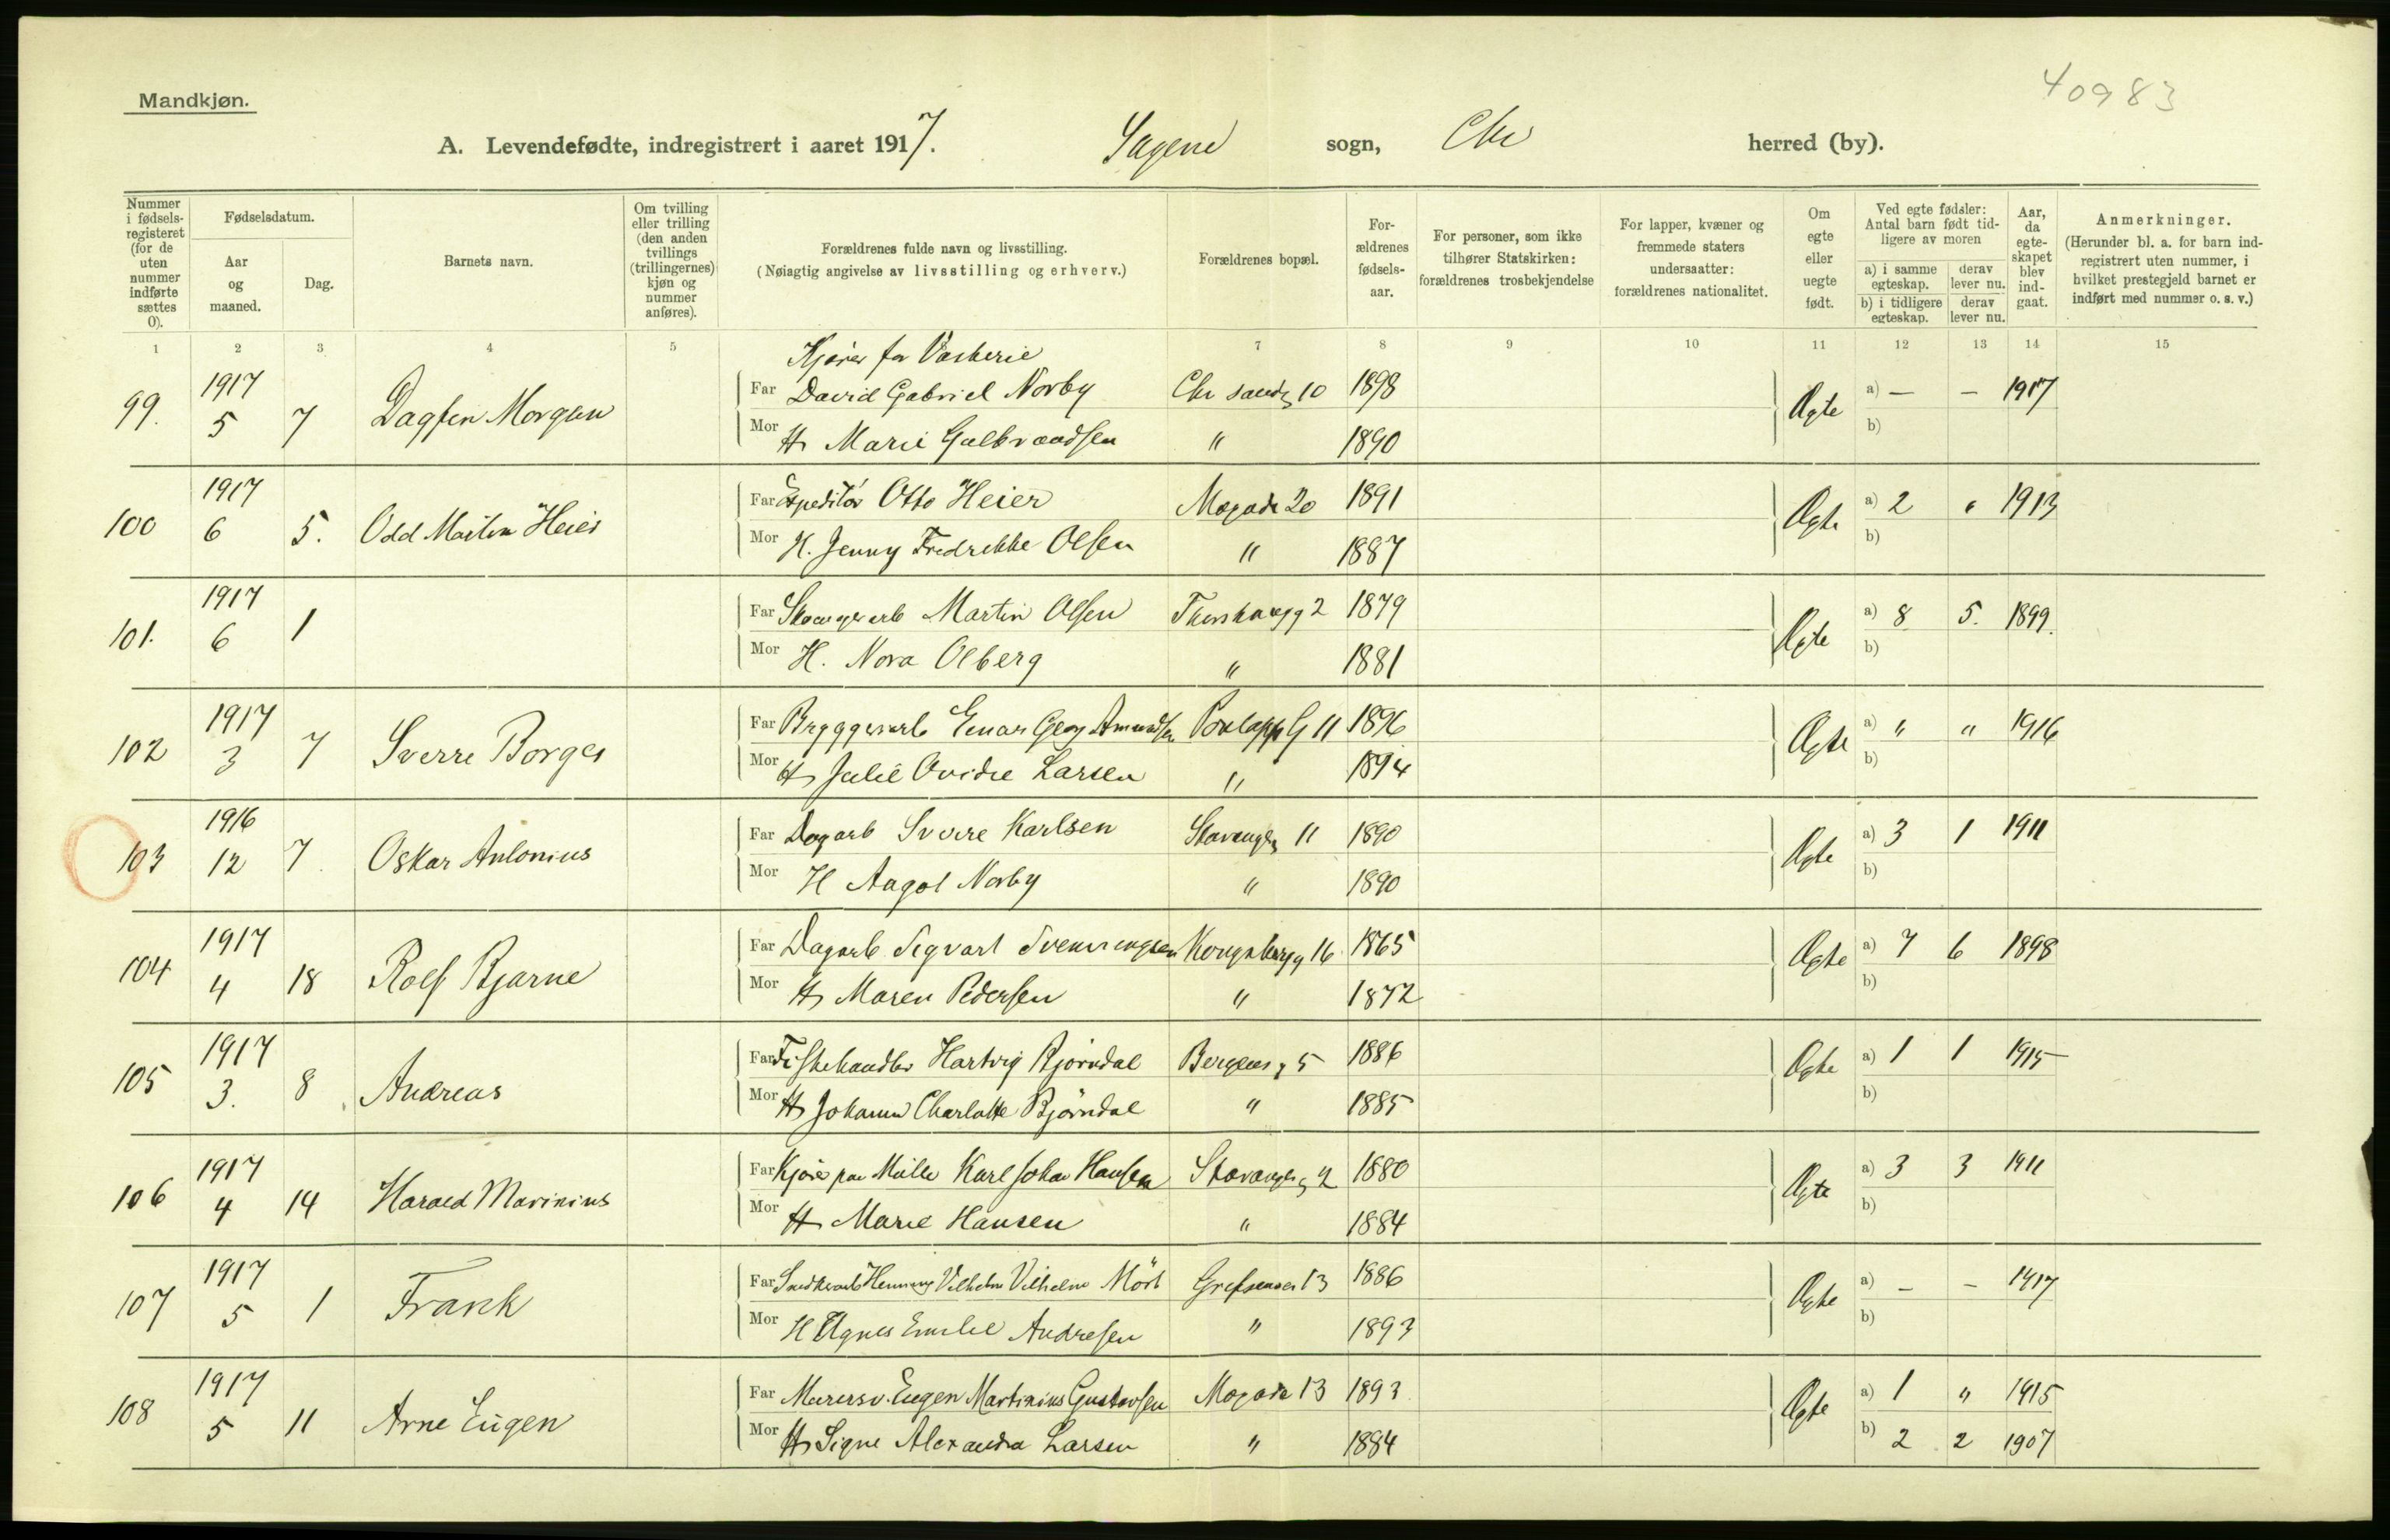 Mandkjøn.
40983
A. Levendefødte, indregistrert i aaret 1917. Sagene sogn, Chr herred (by).
Nummer i fødsels-registeret (for de uten nummer indførte sættes 0).
Fødselsdatum.
Aar og maaned.
Dag.
Barnets navn.
Om tvilling eller trilling (den anden tvillings (trillingernes) kjøn og nummer anføres).
Forældrenes fulde navn og livsstilling.
(Nøiagtig angivelse av livsstilling og erhverv.)
Forældrenes bopæl.
For-ældrenes fødsels-aar.
For personer, som ikke tilhører Statskirken: forældrenes trosbekjendelse
For lapper, kvæner og fremmede staters undersaatter: forældrenes nationalitet.
Om egte eller uegte født.
Ved egte fødsler: Antal barn født tid-ligere av moren
a) i samme egteskap. derav lever nu.
b) i tidligere egteskap. derav lever nu.
Aar, da egte-skapet blev ind-gaat.
Anmerkninger.
(Herunder bl. a. for barn ind-registrert uten nummer, i hvilket prestegjeld barnet er indført med nummer o. s. v.)
1 2 3 4 5 7 8 9 10 11 12 13 14 15
Kjører for Vaskerie
99. 1917 5 7 Dagfin Morgan Far David Gabriel Norby Chr sandg 10 1898 Ægte a) — — 1917
Mor H Marie Gulbrandsen " 1890 b)
100 1917 6 5. Odd Martin Heier Far Expeditør Otto Heier 20 1891 Ægte a) 2 " 1913
Mor H. Jenny Fredrikke Olsen " 1887 b)
101. 1917 6 1 Far Martin Olsen 2 1879 Ægte a) 8 5. 1899.
Mor H. Nora Olberg " 1881 b)
102 1917 3 7 Sverre Borges Far Bryggeriarb Einar Georg Amundsen G 11 1896 Ægte a) " " 1916
Mor H Julie Ovidie Larsen " 1894 b)
103 1916 12 7 Oskar Antonius Far Dagarb Sverre Karlsen Stavangerg 11 1890 Ægte a) 3 1 1911
Mor H Aagot Norby " 1890 b)
104 1917 4 18 Rolf Bjarne Far Dagarb Sigvart Svenningsen Kongsbergg 16 1865 Ægte a) 7 6 1898
Mor H Maren Pedersen " 1872 b)
105 1917 3. 8 Andreas Far Fiskehandler Hartvig Bjørndal Bergensg 5 1886 Ægte a) 1 1 1915
Mor H Johanne Charlotte Bjørndal " 1885 b)
106 1917 4 14 Harald Marinius Far Kjører paa Mølle Karl Johan Hansen Stavangerg 2 1880 Ægte a) 3 3 1911
Mor H Marie Hansen " 1884 b)
107 1917 5 1 Frank Far Snedkerarb Henning Vilhelm Vilhelm Mört Grefsenvei 13 1886 Ægte a) — — 1917
Mor H Agnes Emilie Andresen " 1893 b)
108 1917 5 11 Arne Eugen Far Murersv. Eugen Martinius Gustavsen 13 1893 Ægte a) 1 " 1915
Mor H Signe Alexandra Larsen " 1884 b) 2 2 1907